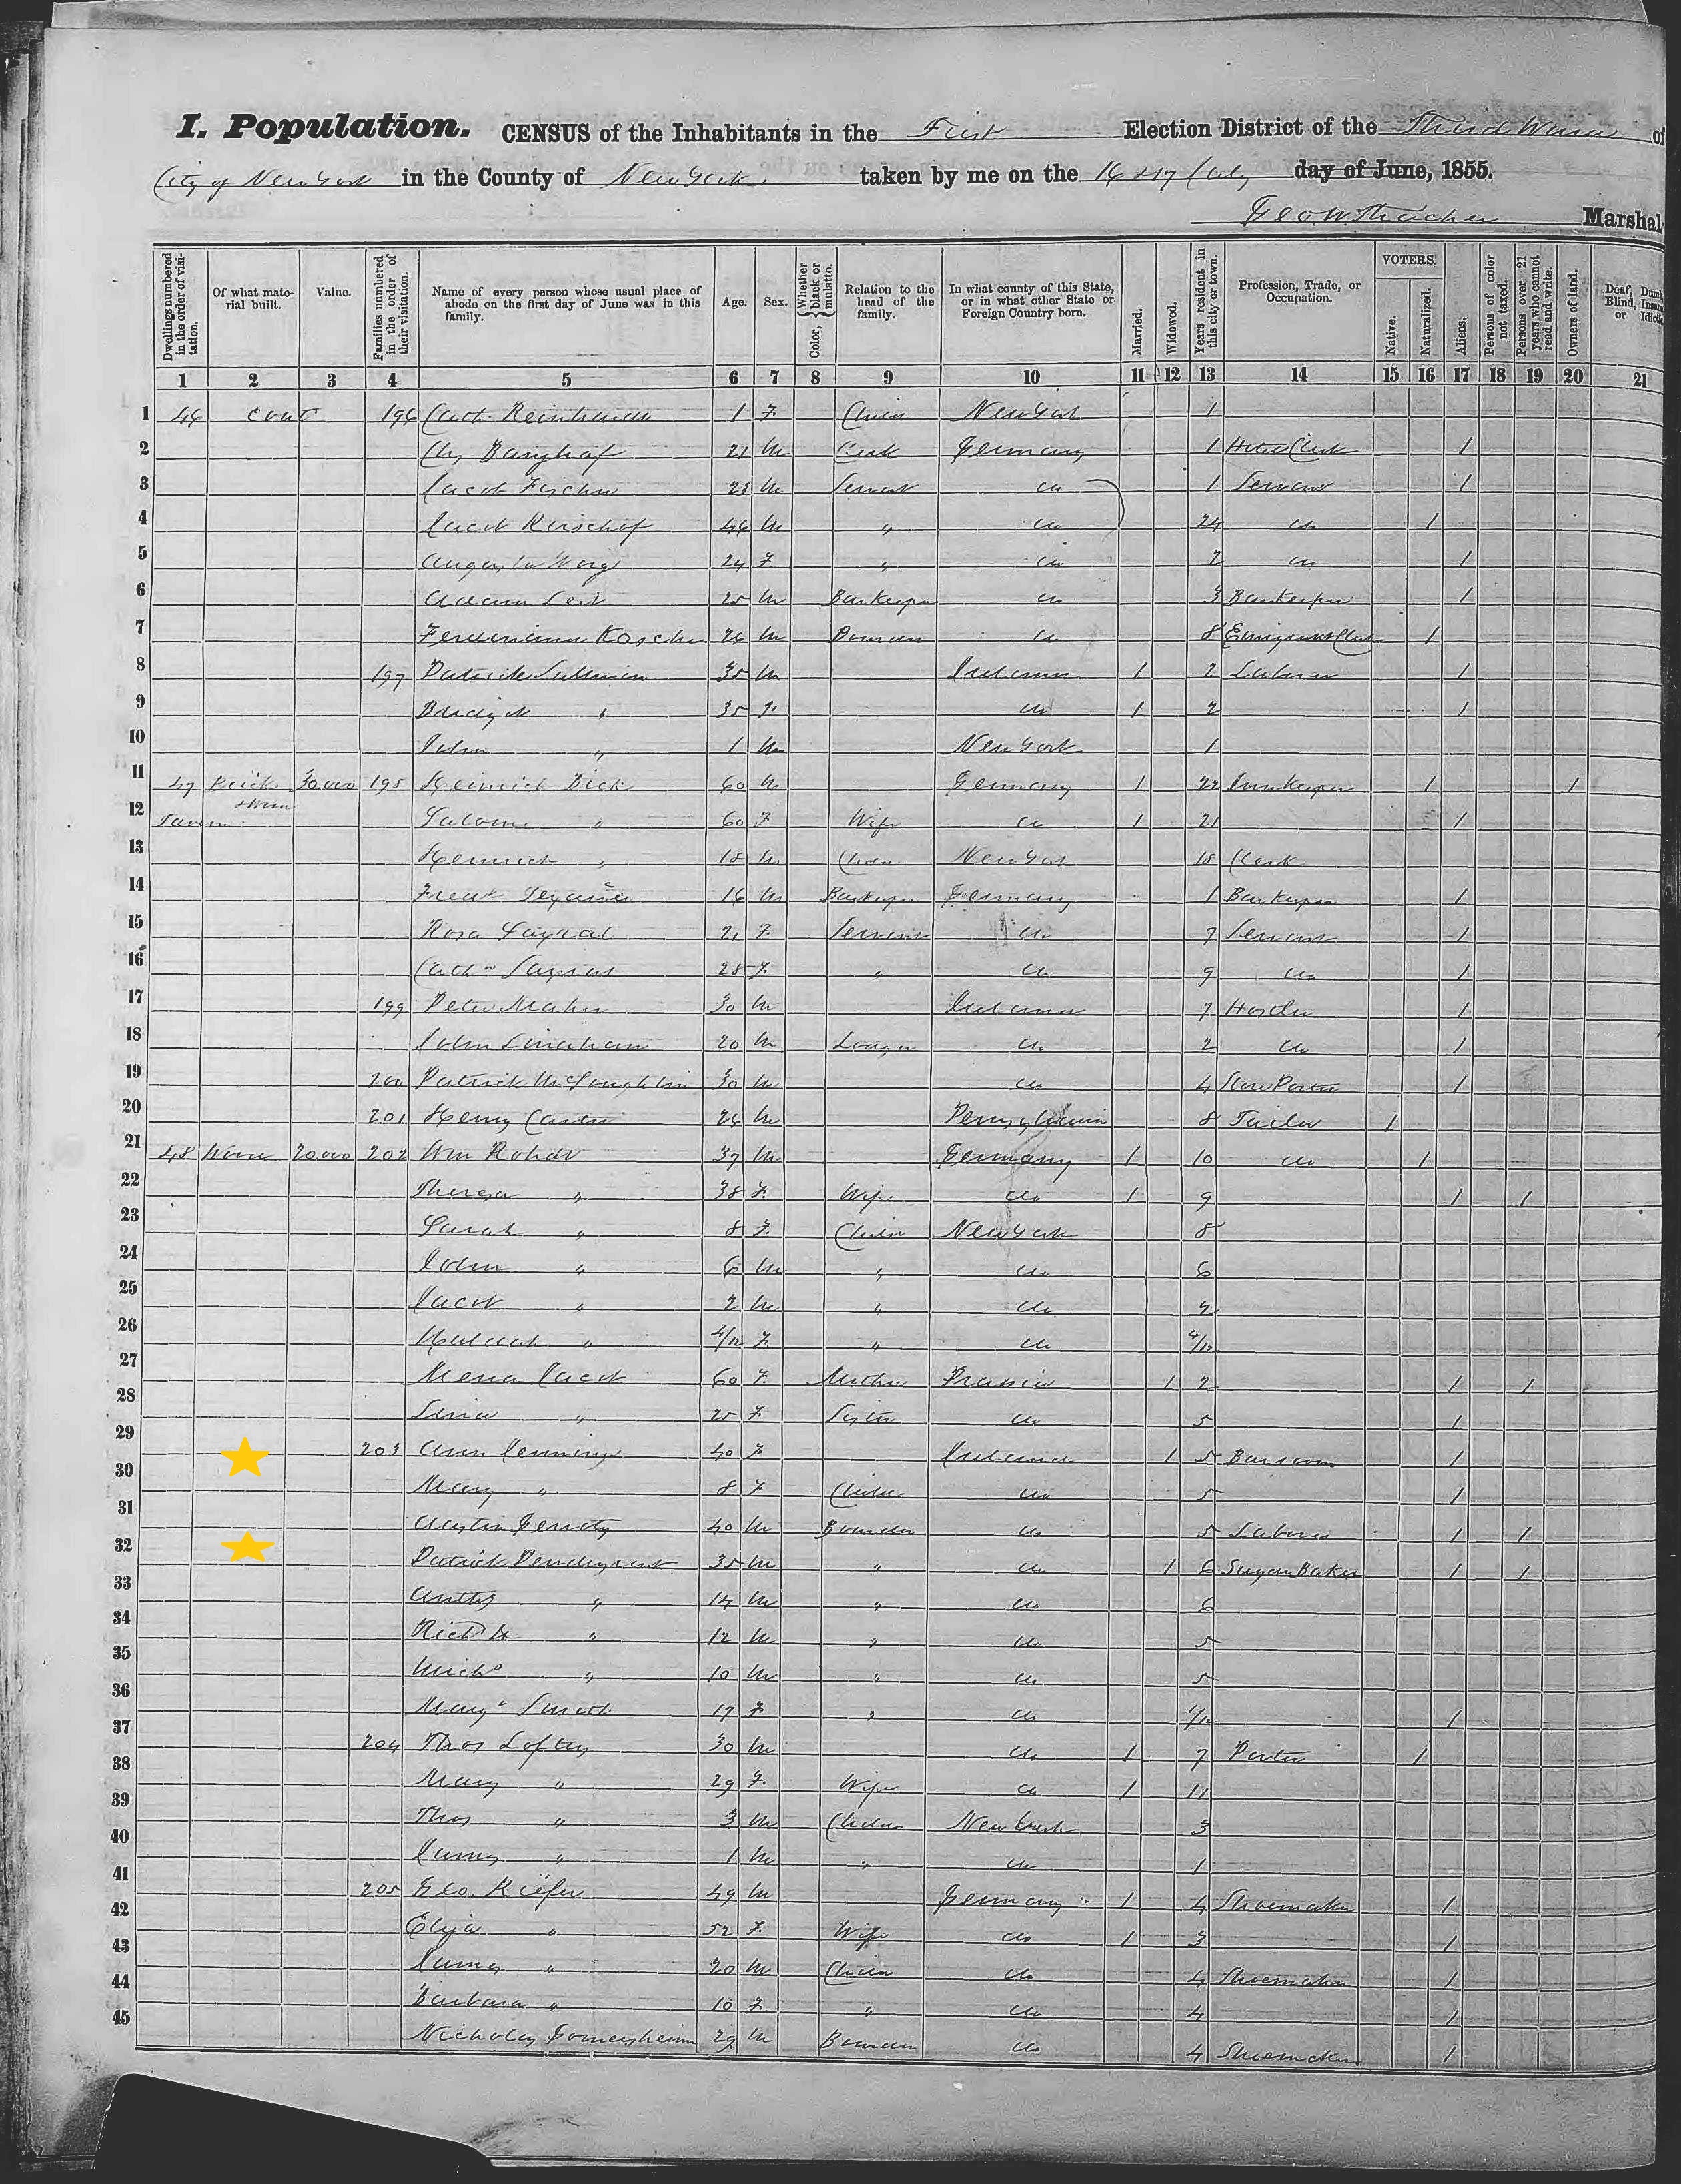 I. Population. CENSUS of the Inhabitants in the First Election District of the Third Ward of
City of New York in the County of New York taken by me on the 16 & 17 July day of June, 1855.
Marshal.
Dwellings numbered in the order of visitation.
Of what material built.
Value.
Families numbered in the order of their visitation.
Name of every person whose usual place of abode on the first day of June was in this family.
Age.
Sex.
Color, { Whether black or mulatto.
Relation to the head of the family.
In what county of this State, or in what other State or Foreign Country born.
Married.
Widowed.
Years resident in this city or town.
Profession, Trade, or Occupation.
VOTERS.
Native.
Naturalized.
Aliens.
Persons of color not taxed.
Persons over 21 years who cannot read and write.
Owners of land.
Deaf, Dumb, Blind, Insane or Idiotic
1 2 3 4 5 6 7 8 9 10 11 12 13 14 15 16 17 18 19 20 21
1 46 cont 196 Cath Reinhardt 1 F Child New York 1
2 21 M Clerk Germany 1 Hotel Clerk 1
3 Jacob Fischer 23 M Servant do 1 Servant 1
4 Jacob 46 M " do 24 do 1
5 Augusta 24 F " do 2 do 1
6 Adam 25 M Barkeeper do 3 Barkeeper 1
7 Ferdinand 26 M Boarder do 8 Emigrant Clerk 1
8 197 Patrick Sullivan 35 M Ireland 1 2 Laborer 1
9 Bridget " 35 F do 1 2 1
10 John " 1 M New York 1
11 47 Brick 30.000 198 Heinrich Dick 60 M Germany 1 22 Innkeeper 1 1
12 Tavern Salome " 60 F Wife do 1 21 1
13 Heinrich " 18 M Child New York 18 Clerk
14 16 M Barkeeper Germany 1 Barkeeper 1
15 Rosa 21 F Servant do 7 Servant 1
16 28 F " do 9 do 1
17 199 Peter 30 M Ireland 7 Hostler 1
18 John 20 M Lodger do 2 do 1
19 200 Patrick McLoughlin 30 M do 4 Store Porter 1
20 201 Henry Carter 26 M Pennsylvania 8 Tailor 1
21 48 Wood 20.000 202 Wm 37 M Germany 1 10 do 1
22 Theresa " 38 F Wife do 1 9 1 1
23 Sarah " 8 F Child New York 8
24 John " 6 M " do 6
25 Jacob " 2 M " do 2
26 Hannah " 4/12 F " do 4/12
27 Jacob 60 F Mother Prussia 1 2 1 1
28 Lina " 25 F Sister do 5 1
29 203 Ann Jennings 40 F Ireland 1 5 Barroom 1
30 Mary " 8 F Child do 5 1
31 Austin Gerrety 40 M Boarder do 5 Laborer 1 1
32 Patrick Pendergrast 35 M " do 1 6 Sugar Baker 1 1
33 Anthy " 14 M " do 6
34 Richd " 12 M " do 5
35 Micho " 10 M " do 5
36 Margt Smith 17 F " do 1/12 1
37 204 Thos Loftus 30 M do 1 7 Porter 1
38 Mary " 29 F Wife do 1 11
39 Thos " 3 M Child New York 3
40 James " 1 M " do 1
41 205 Geo. Kiefer 49 M Germany 1 4 Shoemaker 1
42 Eliza " 52 F Wife do 1 3 1
43 James " 20 M Child do 4 Shoemaker 1
44 Barbara " 10 F " do 4 1
45 Nicholas 29 M Boarder do 4 Shoemaker 1